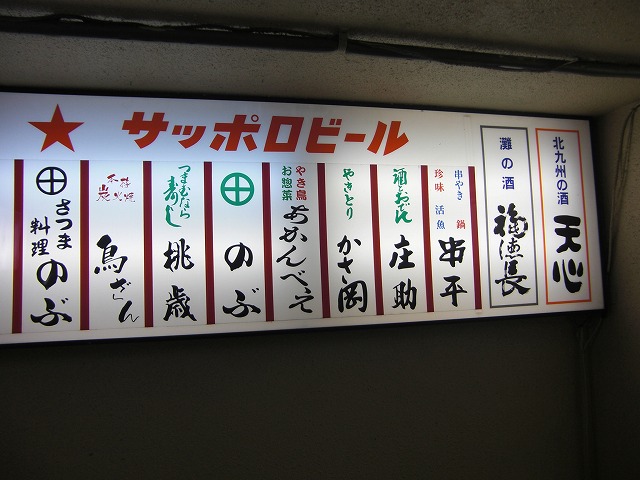 サッポロビール
北九州の酒
天心
灘の酒
福徳長
串やき 鍋
珍味 活魚
串平
酒とおでん
庄助
やきとり
かさ岡
やき鳥
お惣菜
あかんべぇ
のぶ
つまむなら
寿し
桃歳
本格
炭火焼
鳥ざくん
さつま
料理
のぶ